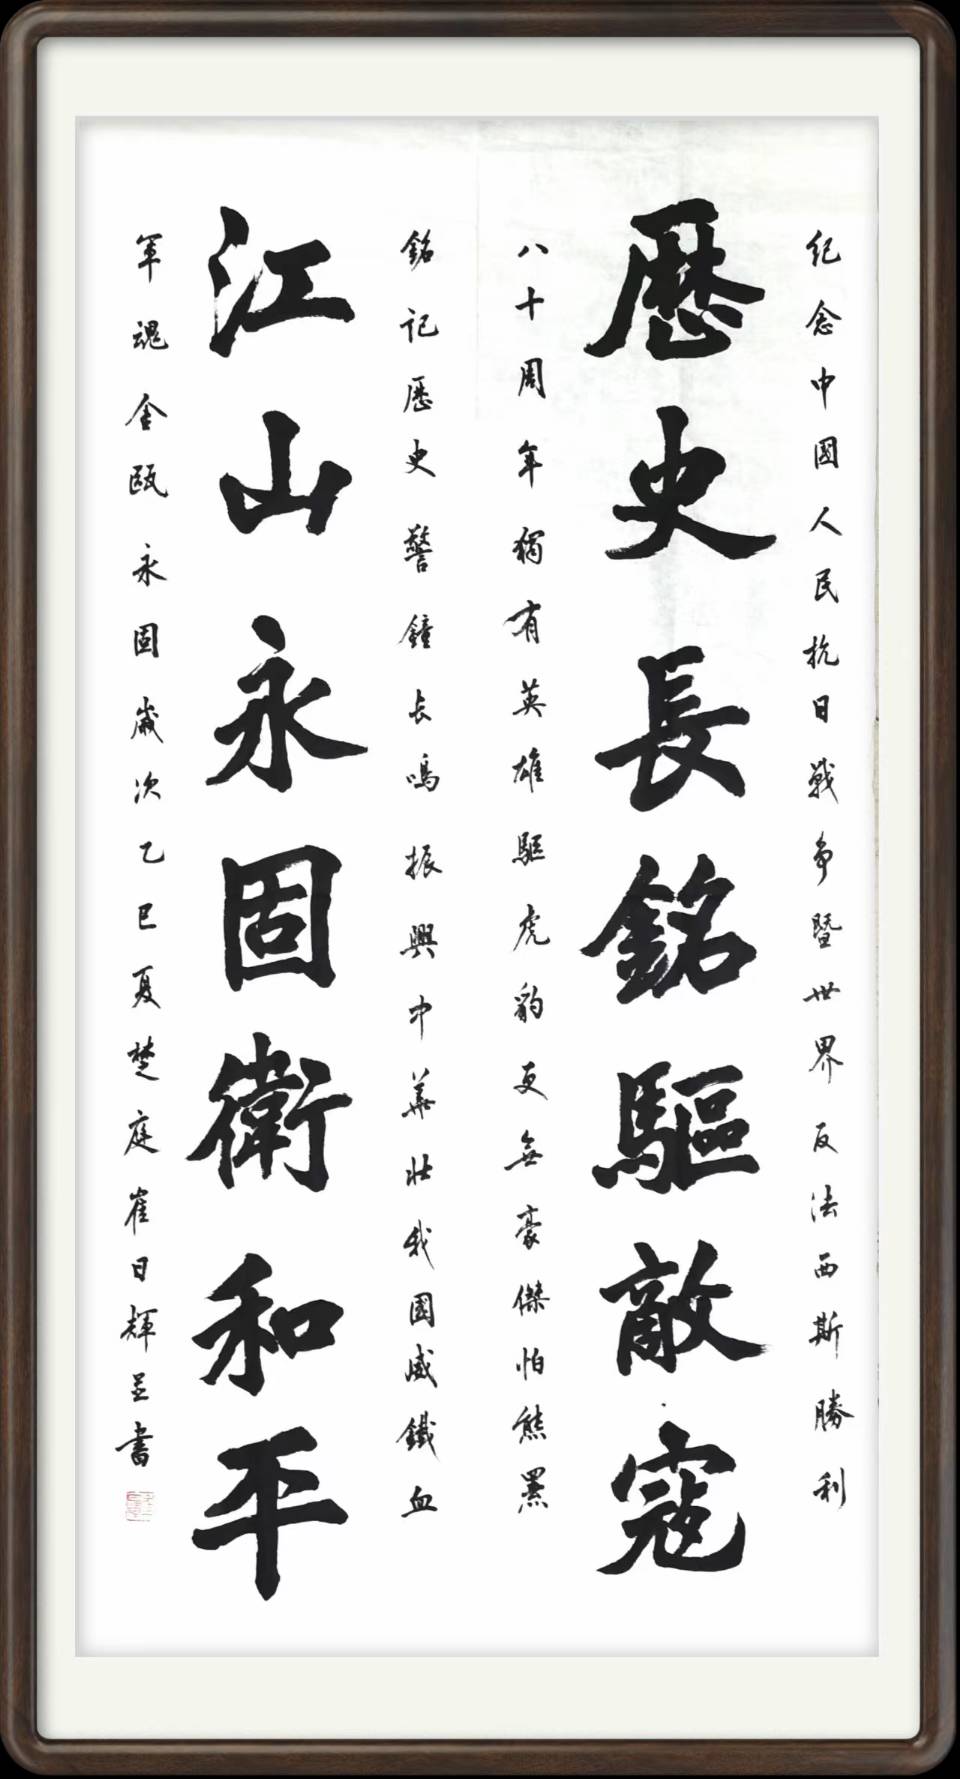 纪念中國人民抗日戰争暨世界反法西斯勝利
歷史長銘驅敵寇
八十周年獨有英雄驅虎豹更無豪傑怕熊罴
銘记歷史警鐘长鳴振興中華壮我國威鐵血
江山永固衛和平
軍魂金瓯永固歲次乙巳夏楚庭崔日輝呈書